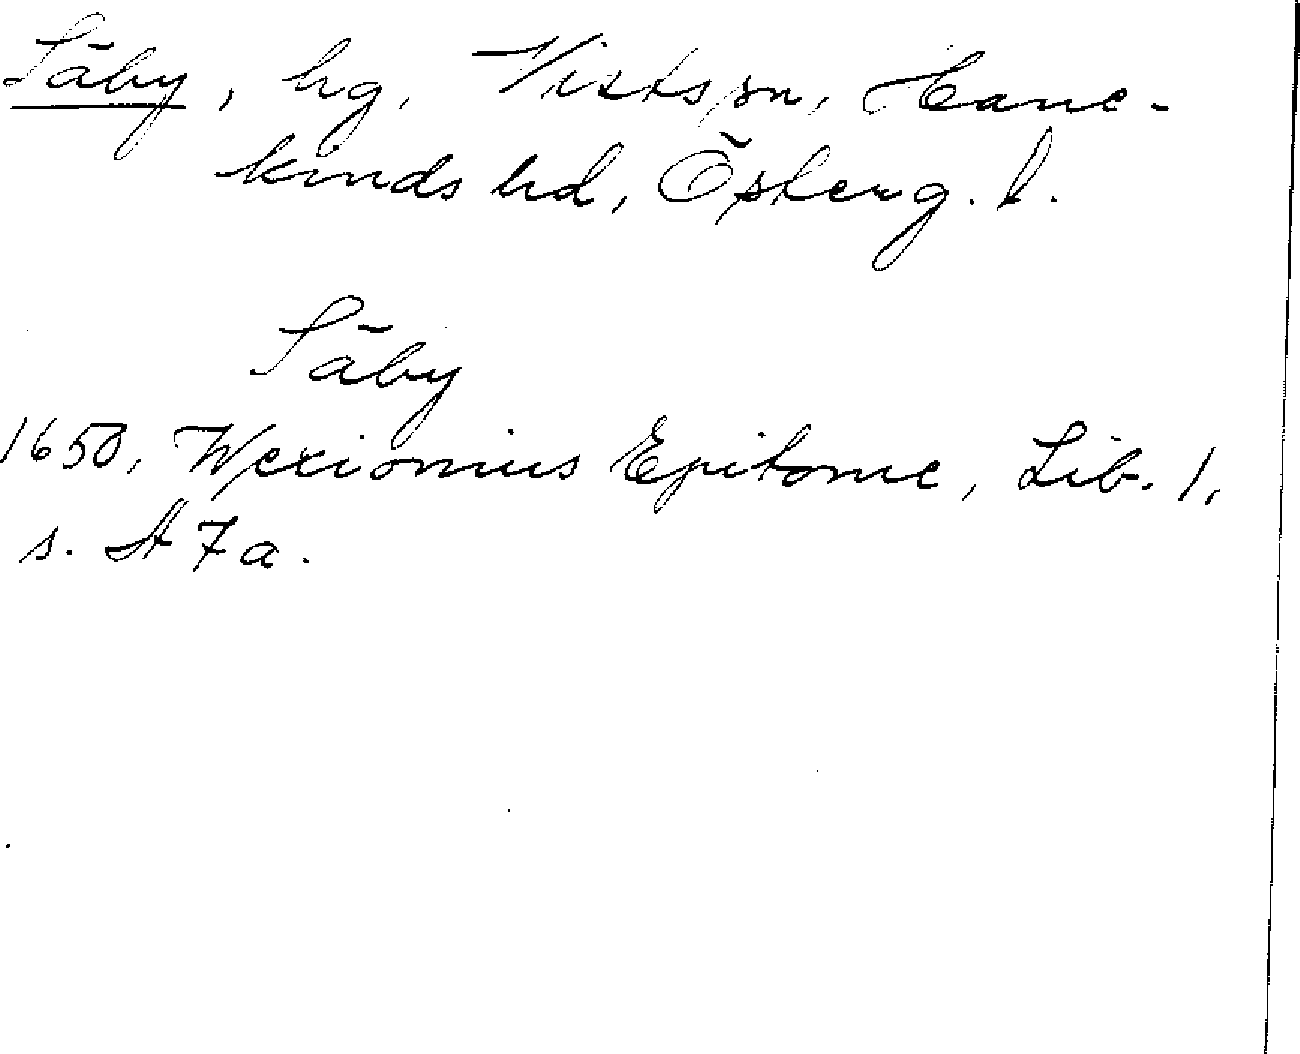 Säby, hg, Vists sn, Hane-
kinds hd, Österg. l.
Säby
1650, Wexionius Epitome, Lib. 1,
s. A 7 a.